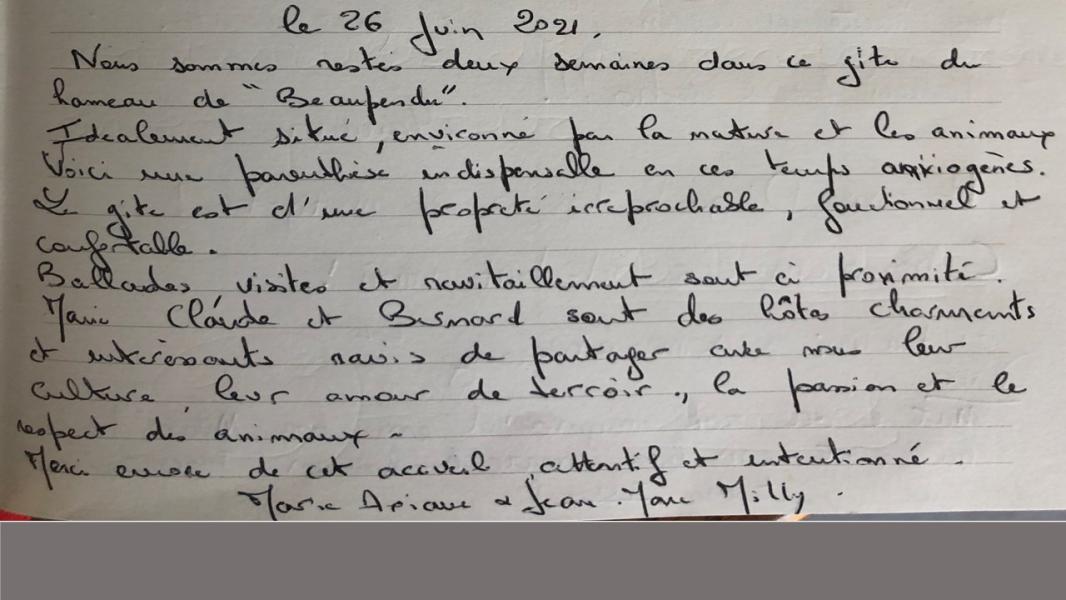 le 26 Juin 2021.
Nous sommes restés deux semaines dans ce gite du
hameau de "Beaupendu".
Idealement situé, environné par la nature et les animaux
Voici une parenthèse indispensable en ces temps anxiogènes.
Le gite est d'une propreté irreprochable, fonctionnel et
confortable.
Ballades visites et ravitaillement sont à proximité.
Marie Claude et Bernard sont des hôtes charmants
et intéressants ravis de partager avec nous leur
culture, leur amour de terroir, la passion et le
respect des animaux -
Merci encore de cet accueil attentif et intentionné.
Marie Ariane & Jean.Marc Milly.